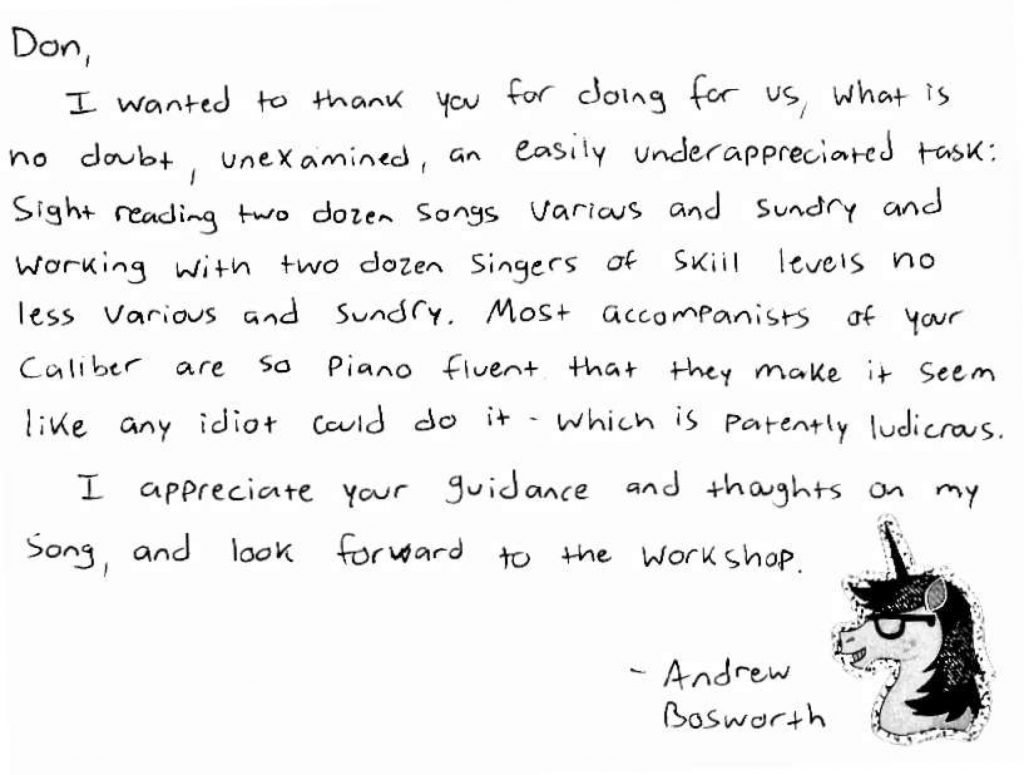 Don,
I wanted to thank you for doing for us, what is
no doubt, unexamined, an easily underappreciated task:
Sight reading two dozen songs various and sundry and
working with two dozen singers of skill levels no
less various and sundry. Most accompanists of your
caliber are so piano fluent that they make it seem
like any idiot could do it - which is patently ludicrous.
I appreciate your guidance and thoughts on my
song, and look forward to the workshop.
- Andrew
Bosworth